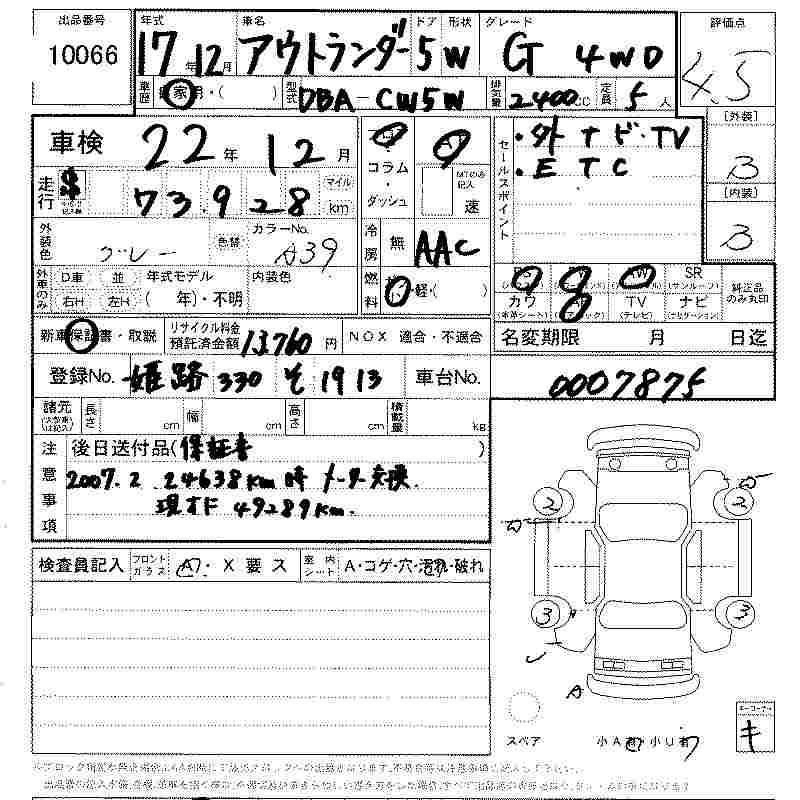 出品番号 10066
年式 17年12月 車名 アウトランダー ドア 5 形状 W グレード G 4WD 評価点 4.5
車歴 自家用・( ) 型式 DBA-CW5W 排気量 2400cc 定員 5人
車検 22年12月
コラム・ダッシュ
MTのみ記入 速
セールスポイント ・外ナビ・TV
・ETC
[外装] B
[内装] B
走行 73,928 マイル km
外装色 グレー 色替 カラーNo. A39
冷房 無 AAC
外車のみ D車 並 年式モデル 内装色
右H 左H ( 年)・不明
燃料 ・軽・( )
SR (サンルーフ)
カワ (本革シート) TV (テレビ) ナビ (ナビゲーション)
純正品のみ丸印
新車保証書・取説 リサイクル料金預託済金額 13760円 NOX 適合・不適合
名変期限 月 日迄
登録No. 姫路 330 そ 1913 車台No. 0007875
諸元 長さ cm 幅 cm 高さ cm 積載量 kg
注意事項 後日送付品(保証書 )
2007.2 24638km時 メーター交換.
現オド 49289km.
検査員記入 フロントガラス A・X要ス 室内シート A・コゲ・穴・汚れ・破れ
2 2
3 3
A
スペア 小A 小U
キ